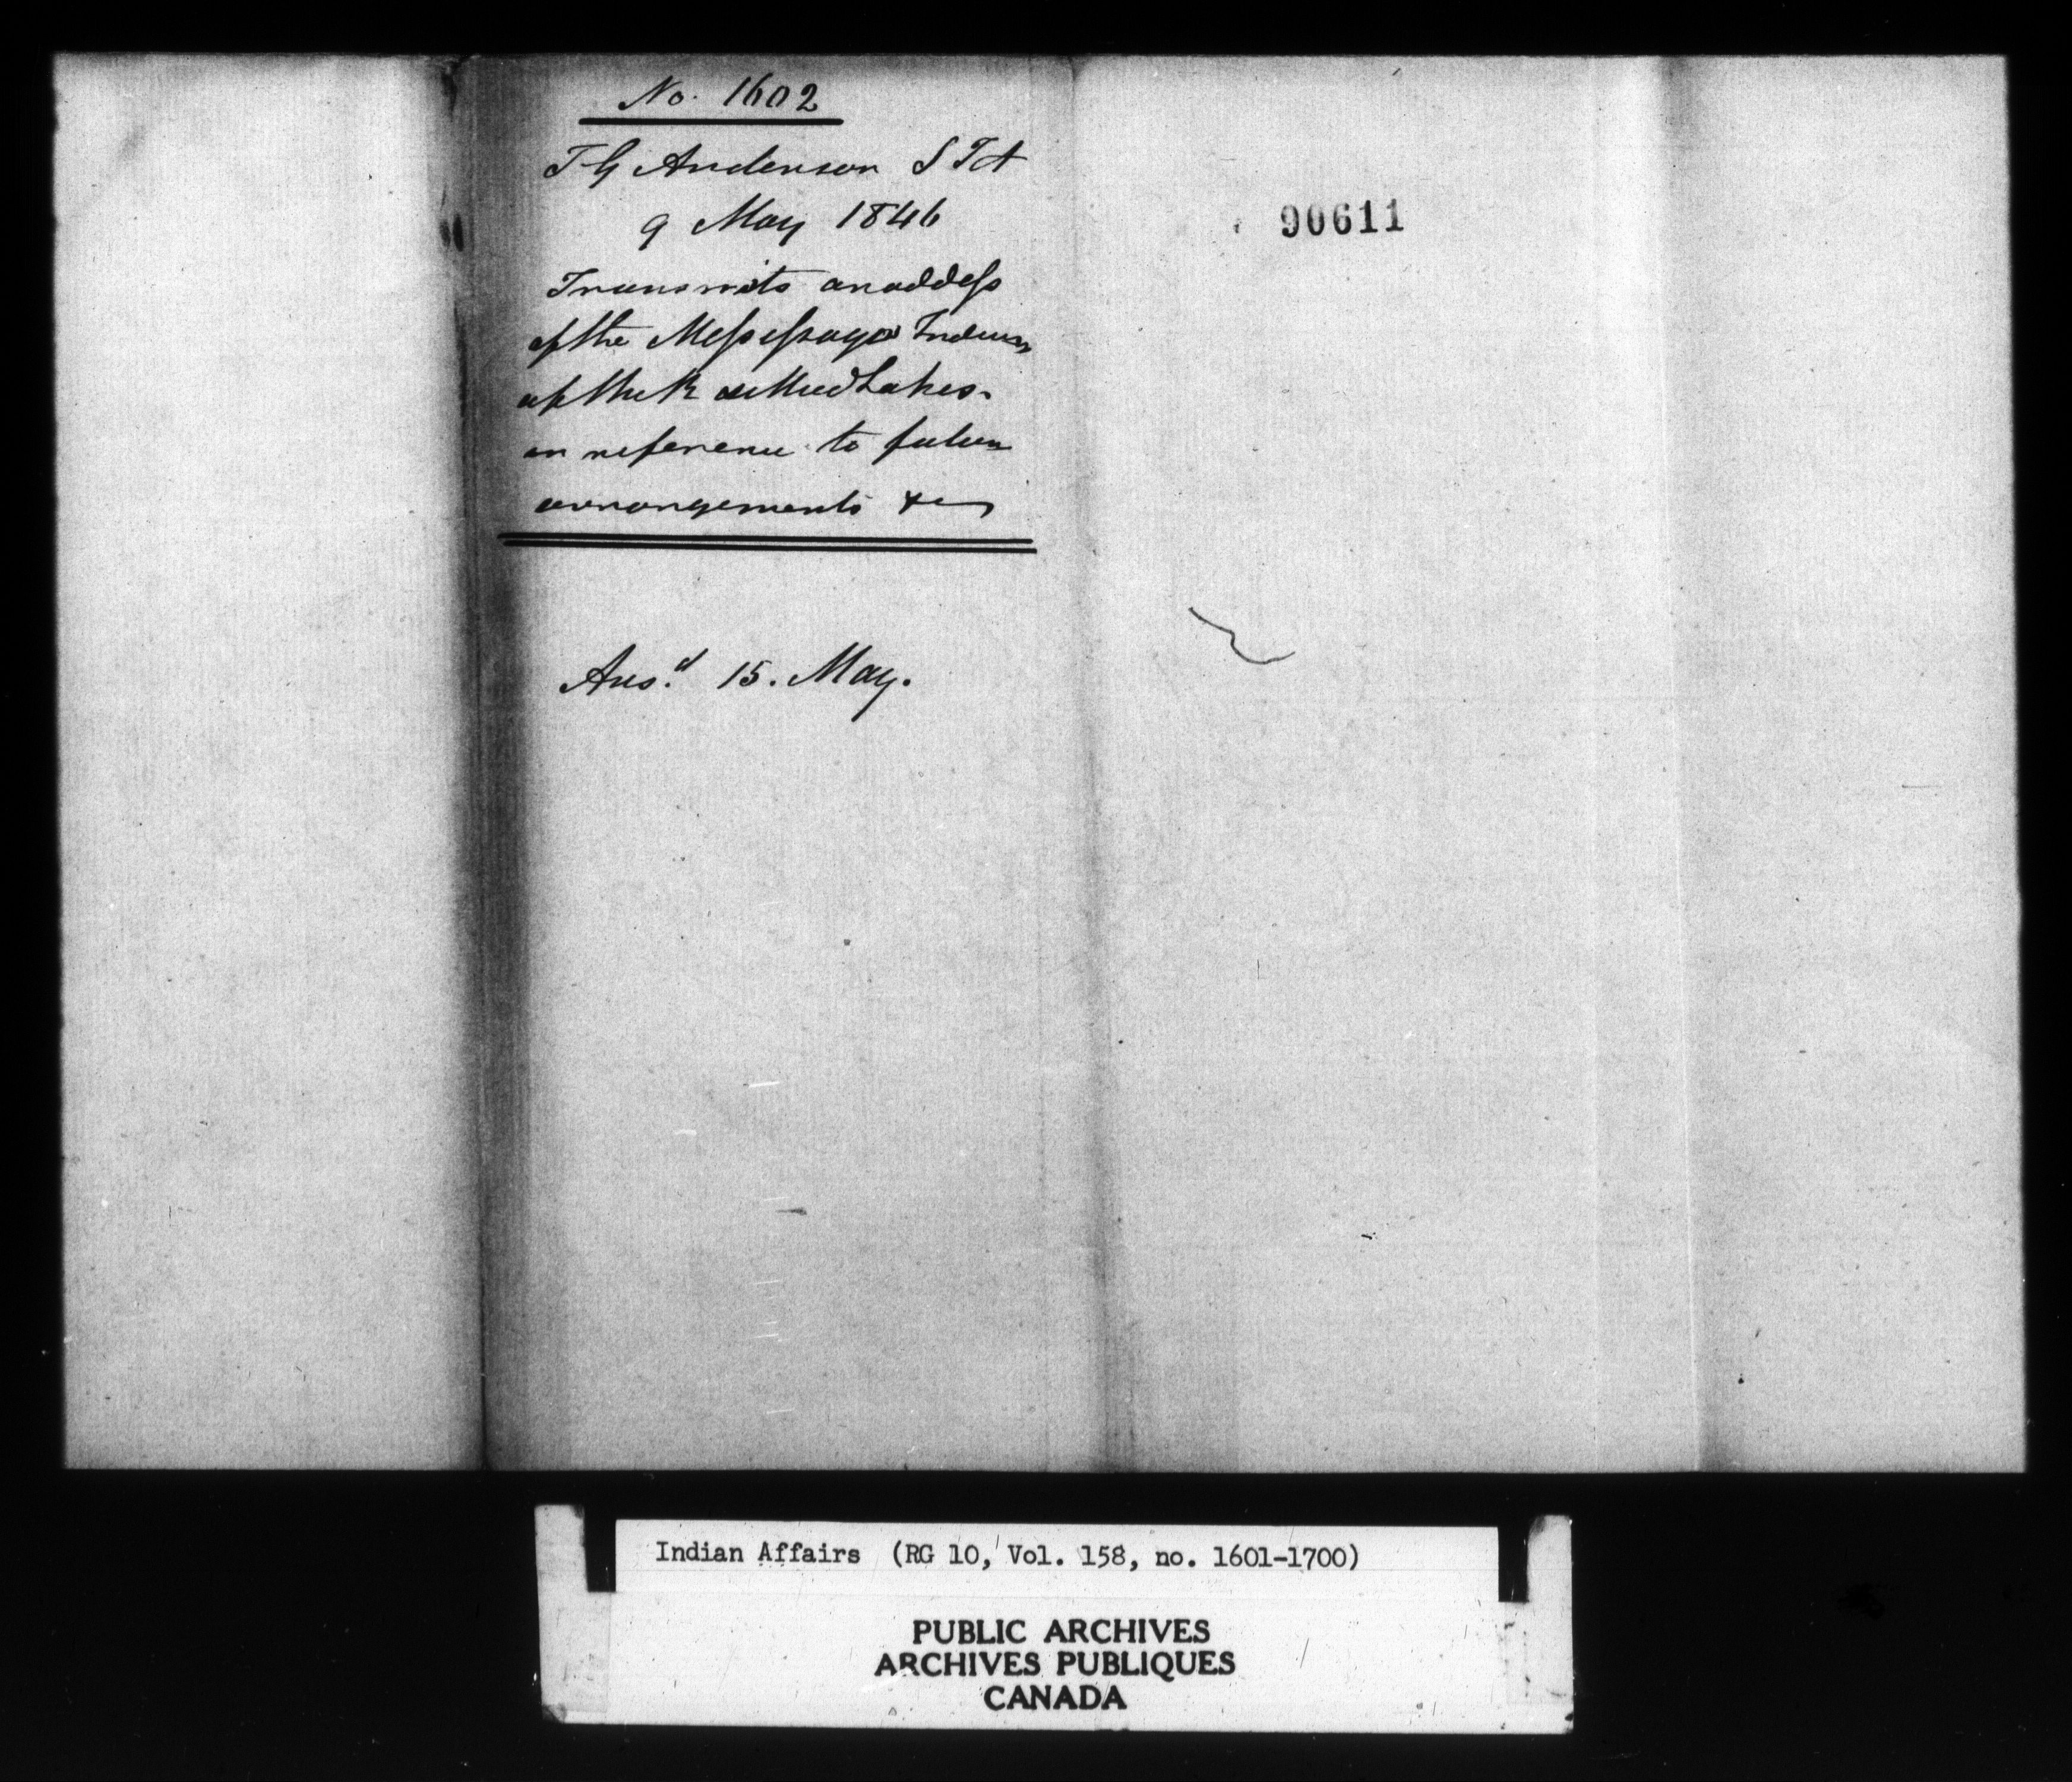 No. 1602
T G Anderson S I A
9 May 1846
Transmits an address
of the Messessaga Indians
of the R & Mud Lakes.
in reference to future
arrangements &c
Ansd 15. May.
90611
Indian Affairs (RG 10, Vol. 158, no. 1601-1700)
PUBLIC ARCHIVES
ARCHIVES PUBLIQUES
CANADA